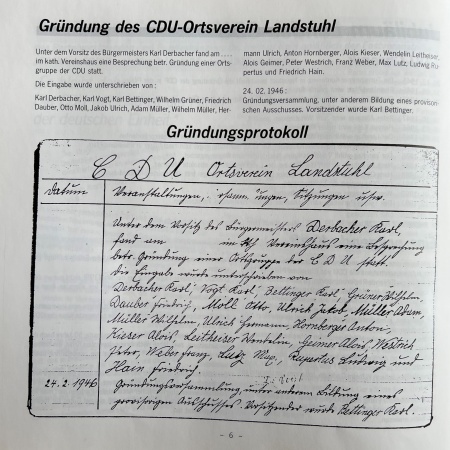 Gründung des CDU-Ortsverein Landstuhl
Unter dem Vorsitz des Bürgermeisters Karl Derbacher fand am ....
im kath. Vereinshaus eine Besprechung betr. Gründung einer Orts-
gruppe der CDU statt.
Die Eingabe wurde unterschrieben von :
Karl Derbacher, Karl Vogt, Karl Bettinger, Wilhelm Grüner, Friedrich
Dauber, Otto Moll, Jakob Ulrich, Adam Müller, Wilhelm Müller, Her-
mann Ulrich, Anton Hornberger, Alois Kieser, Wendelin Leitheiser,
Alois Geimer, Peter Westrich, Franz Weber, Max Lutz, Ludwig Ru-
pertus und Friedrich Hain.
24. 02. 1946 :
Gründungsversammlung, unter anderem Bildung eines provisori-
schen Ausschusses. Vorsitzender wurde Karl Bettinger.
Gründungsprotokoll
C D U Ortsverein Landstuhl
Datum Veranstaltungen, Sitzungen usw.
Unter dem Vorsitz des Bürgermeisters Derbacher Karl,
fand am im kth Vereinshaus eine Besprechung
betr. Gründung einer Ortsgruppe der C D U statt.
die Eingabe wurde unterschrieben von
Derbacher Karl, Vogt Karl, Bettinger Karl, Grüner Wilhelm,
Dauber Friedrich, Moll Otto, Ulrich Jakob, Müller Adam,
Müller Wilhelm, Ulrich Hermann, Hornberger Anton,
Kieser Alois, Leitheiser Wendelin, Geimer Alois, Westrich
Peter, Weber Franz, Lutz Max, Rupertus Ludwig und
Hain Friedrich.
24.2.1946 Gründungsversammlung, unter anderem Bildung eines
provisorischen Ausschusses Vorsitzender wurde Bettinger Karl.
- 6 -